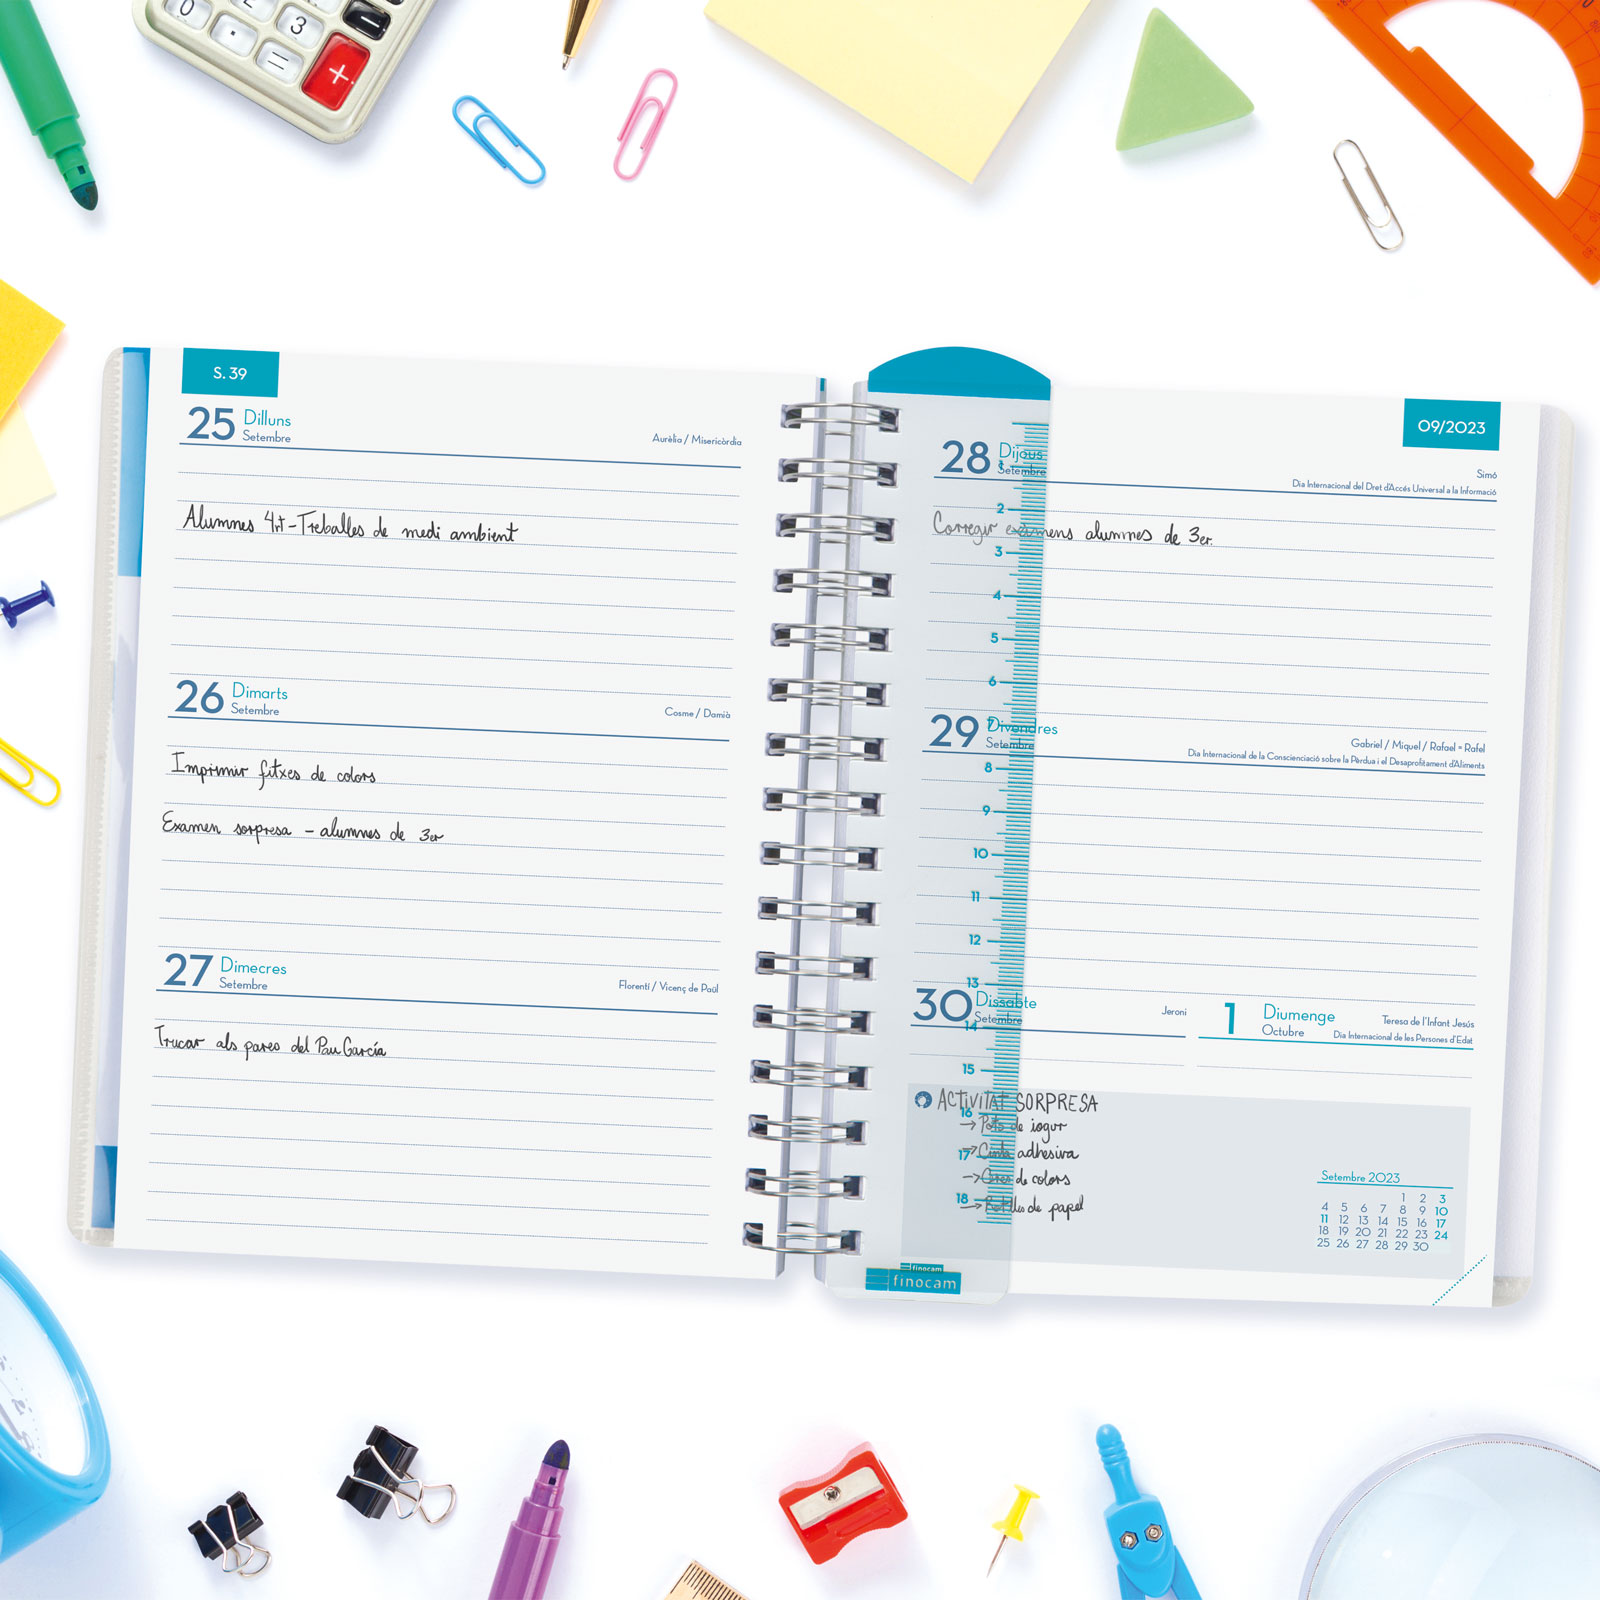 0
.
3
=
-
+
S. 39
25 Dilluns
Setembre
Aurèlia / Misericòrdia
Alumnes 4rt - Treballes de medi ambient
26 Dimarts
Setembre
Cosme / Damià
Imprimir fitxes de colors
Examen sorpresa - alumnes de 3er
27 Dimecres
Setembre
Florentí / Vicenç de Paül
Trucar als pares del Pau García
09/2023
28 Dijous
Setembre
Simó
Dia Internacional del Dret d'Accés Universal a la Informació
Corregir exàmens alumnes de 3er.
29 Divendres
Setembre
Gabriel / Miquel / Rafael = Rafel
Dia Internacional de la Conscienciació sobre la Pèrdua i el Desaprofitament d'Aliments
30 Dissabte
Setembre
Jeroni
1 Diumenge
Octubre
Teresa de l'Infant Jesús
Dia Internacional de les Persones d'Edat
ACTIVITAT SORPRESA
→ Pots de iogur
→ Cinta adhesiva
→ Ceres de colors
→ Rotlles de papel
Setembre 2023
1 2 3
4 5 6 7 8 9 10
11 12 13 14 15 16 17
18 19 20 21 22 23 24
25 26 27 28 29 30
2
3
4
5
6
7
8
9
10
11
12
13
14
15
16
17
18
finocam
finocam